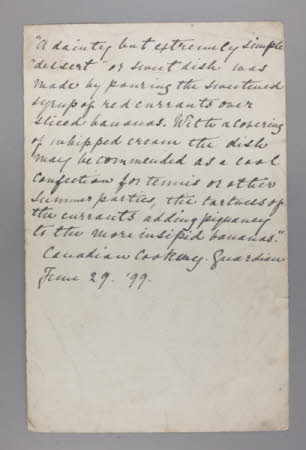 "A dainty but extremely simple
"dessert" or sweet dish was
made by pouring the sweetened
syrup of red currants over
sliced bananas. With a covering
of whipped cream the dish
may be commended as a cool
confection for tennis or other
summer parties, the tartness of
the currants adding piquancy
to the more insipid bananas."
Canadian Cookery. Guardian
June 29. '99.